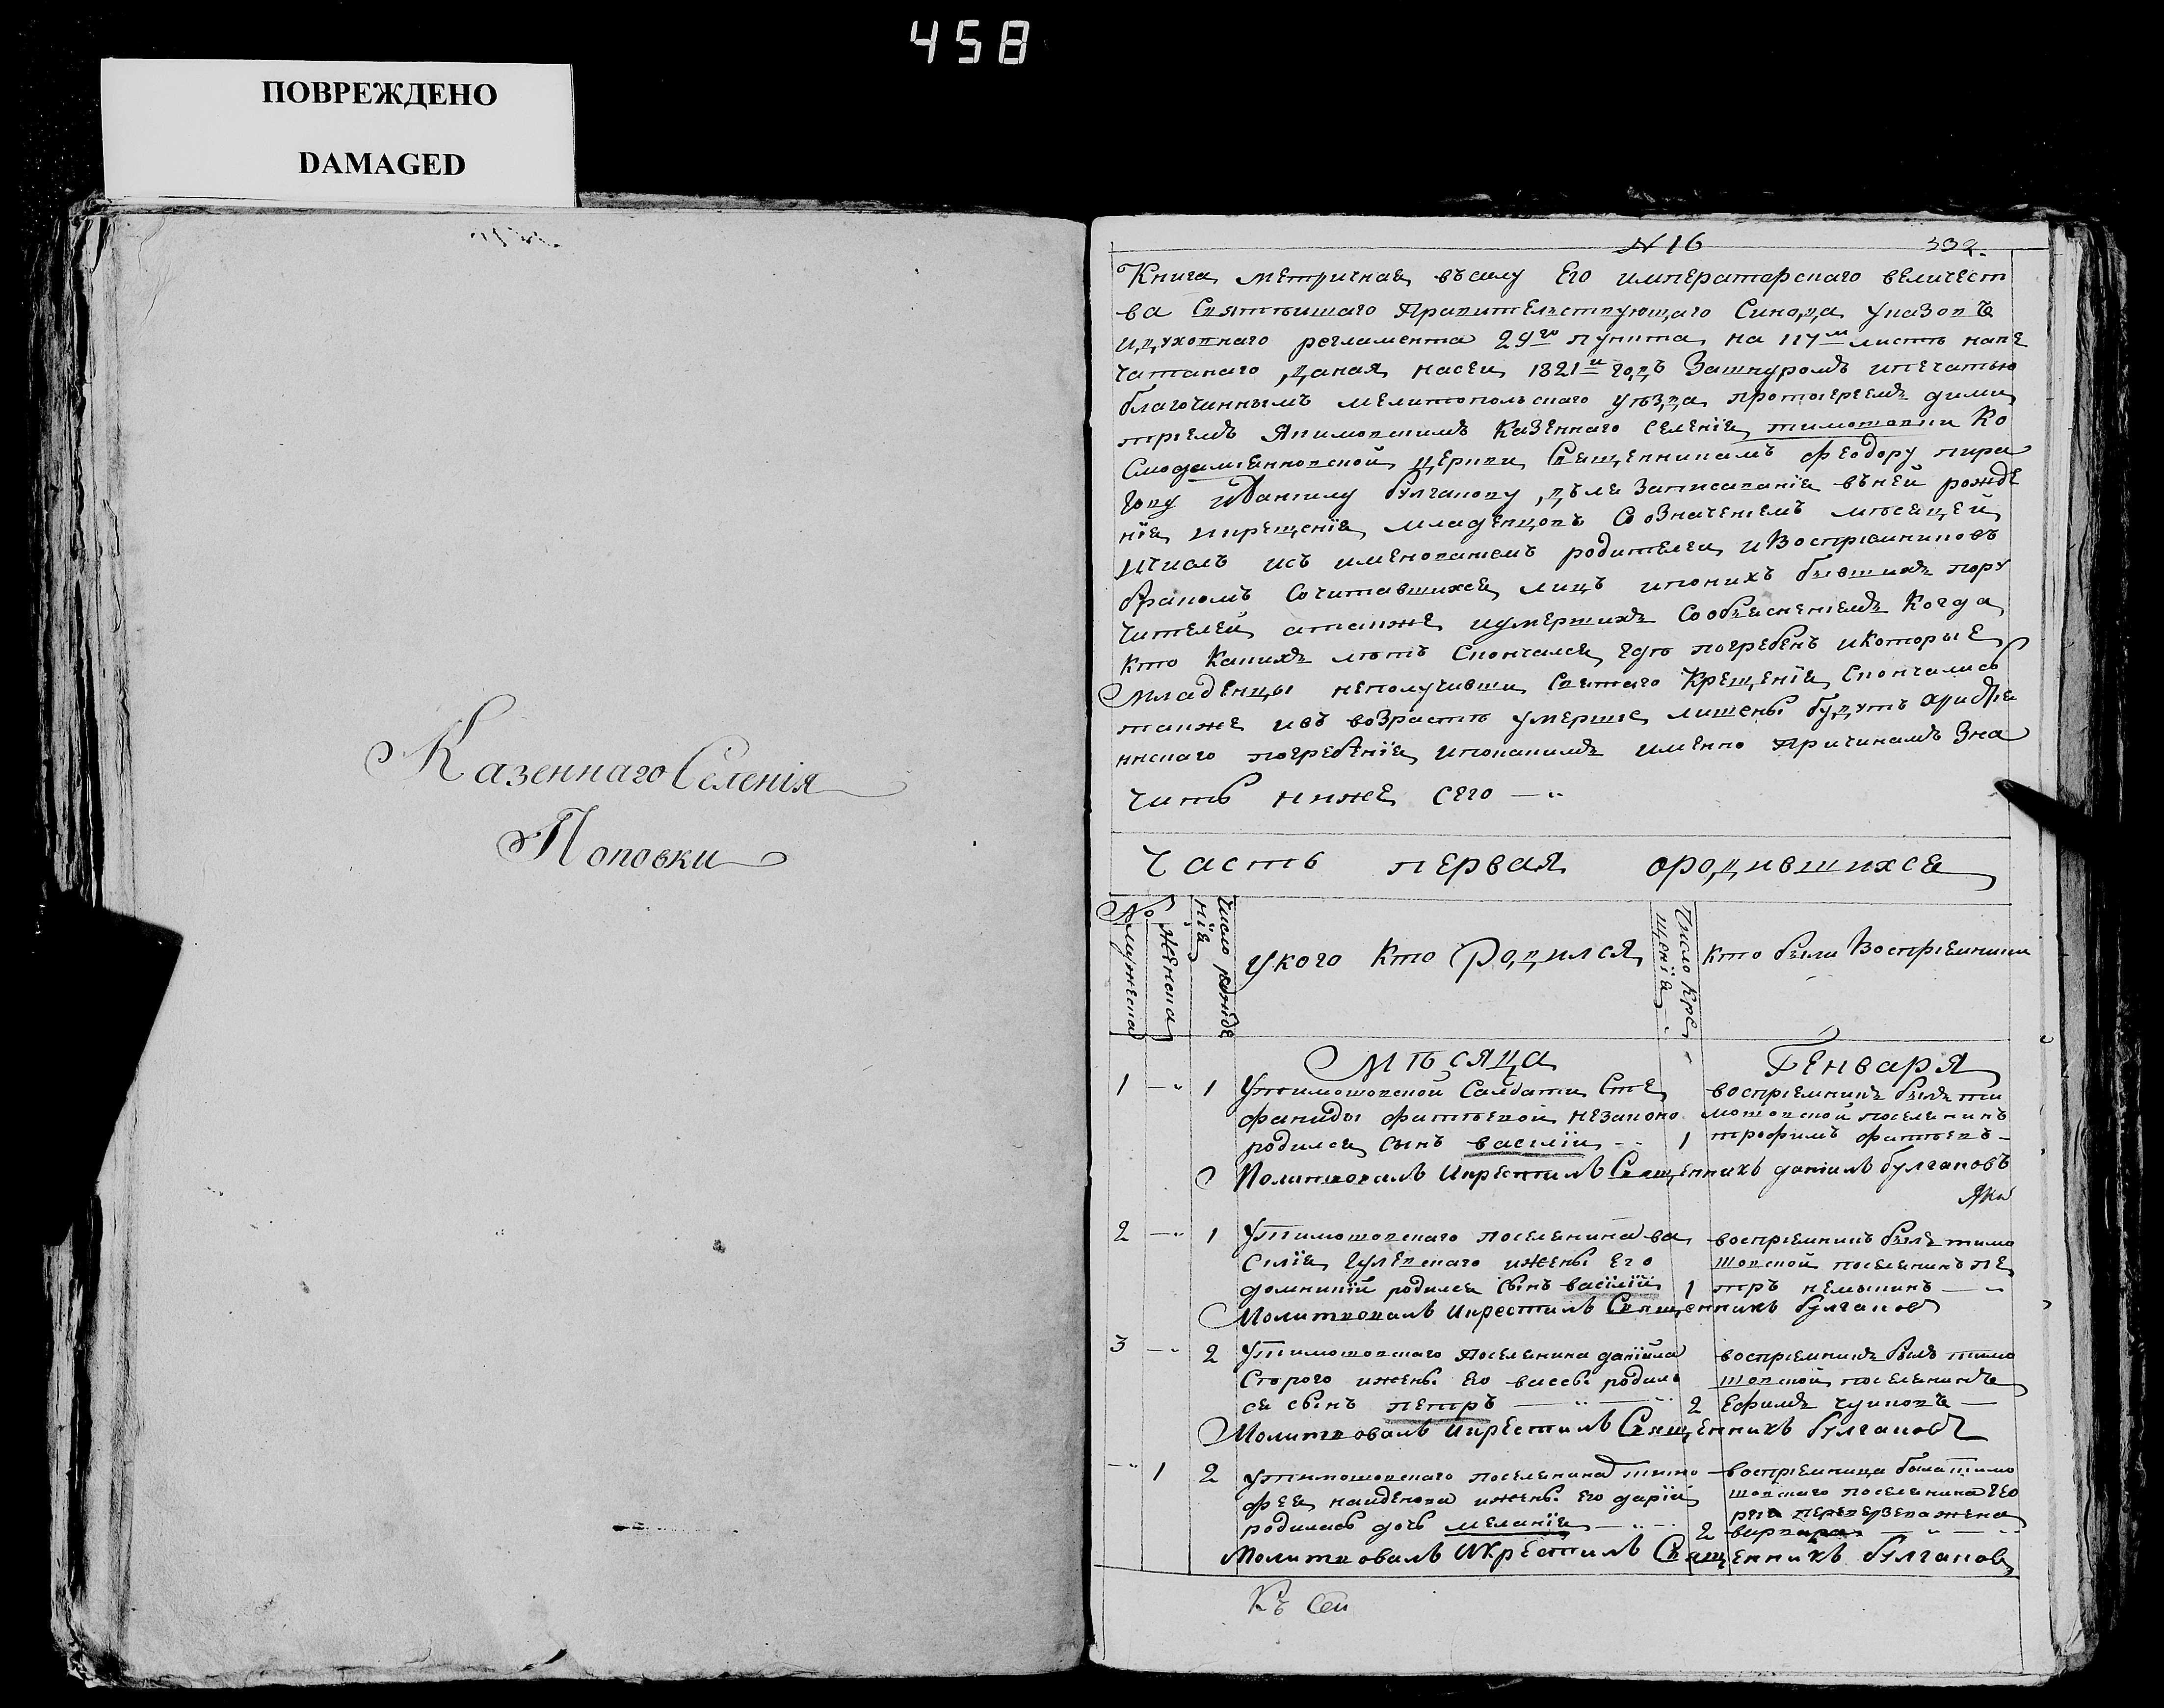 458
ПОВРЕЖДЕНО
DAMAGED
Казеннаго Селенія
Поповки
№ 16
332.
Книга метричная въсилу Его императорскаго величест
ва Святѣйшаго Правительствующаго Синода указовъ
идуховнаго регламента 29го пункта на 117м листѣ напе
чатанаго даная насеи 1821й годъ Зашнуромъ ипечатью
благочиннымъ мелитопольскаго уѣзда протоіереемъ дими
тріемъ Якимовскимъ Казеннаго селенія тимошовки Ко
Смодаміянновской церкви Священникамъ феодору
иДаниилу булгакову дѣля Записаванія въней рожде
нія икрещенія младенцовъ Со означеніемъ мѣсяцей
ичислъ исъ именованіемъ родителеи иВоспріемниковъ
бракомъ Сочитавшихся лицъ ипонихъ бывшихъ пору
чителей атакже иумершихъ Собѣясненіемъ Когда
кто Какихъ лѣтъ Скончался гдѣ погребенъ икоторые
Младенцы неполучивши Святаго Крещенія Скончались
также ивъ возрастѣ умершіе лишены будутъ христіа
нскаго погребенія ипокакимъ именно причинамъ Зна
чить ниже сего —
Часть первая ородившихся
№ мужеска
женска
Число рожде
нія
укого Кто Родился
Число Кре
щенія
Кто были Воспріемники
Мѣсяца Генваря
1 — 1 Утимошовской Салдатки Сте
фаниды фатѣевой незаконо
родился сынъ василіи 1
воспріемникъ былъ ти
мошовской поселянинъ
трофимъ фатѣевъ —
Молитвовалъ Икрестилъ Священникъ даніилъ булгаковъ
2 — 1 Утимошовскаго поселянина ва
силія гулевскаго ижены Его
домникій родился Сынъ василій 1
воспріемникъ былъ тимо
шовской поселянинъ пе
тръ —
Молитвовалъ Икрестилъ Священникъ булгаковъ
3 — 2 Утимошовскаго Поселянина данійла
Старого ижены Его вассы родил
ся сынъ петръ — 2
воспріемникъ былъ тимо
шовской поселянинъ
Ефимъ чуиковъ —
Молитвовалъ Икрестилъ Священникъ булгаковъ
— 1 2 утимошовскаго поселянина тимо
фея наиденова ижены Его даріи
родилась дочь меланія — 2
воспріемница была тимо
шовскаго поселянина гео
ргія жена
варвара —
Молитвовалъ Икрестилъ Священникъ булгаковъ
Къ сей